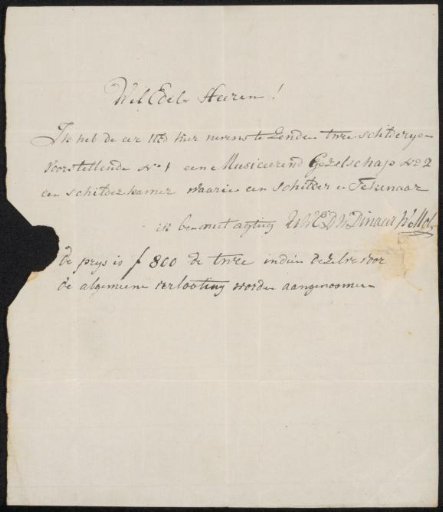 Wel Edele Heeren!
Ik heb de eer UEd hier nevens te Zenden twee schilderyen
voorstellende No 1 een Musiceerend Gezelschap No 2
een schilderkamer waarin een schilder en Tekenaar
ik ben met agting UWEDW Dinaar W Mol
de prys is f 800 de twee indien dezelve voor
de algemeene verlooting worden aangenomen